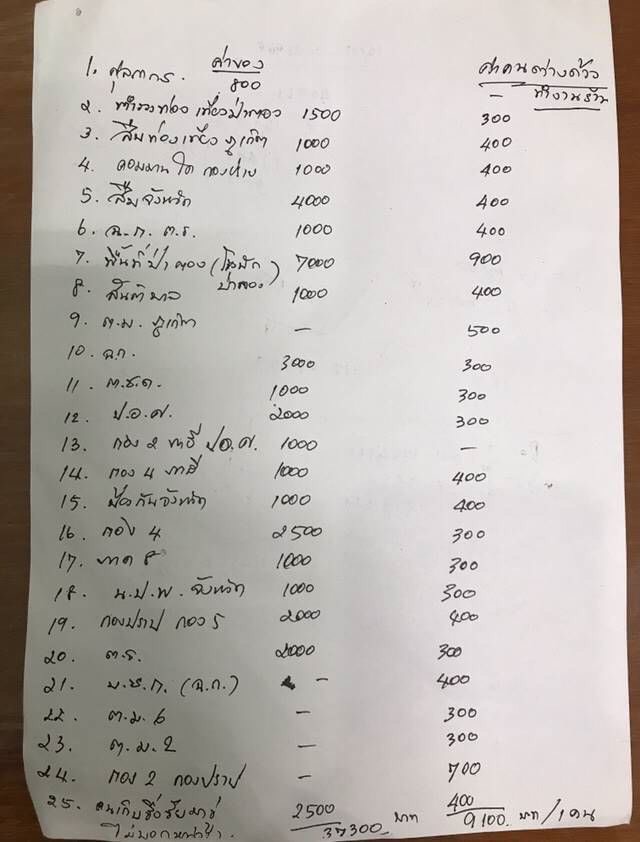 ค่าของ ค่าคนต่างด้าว
1. ศุลกากร. 800 – ทำงานร้าน
2. ท่องเที่ยวป่าตอง 1500 300
3. สืบท่องเที่ยว ภูเก็ต 1000 400
4. คอมมานโด 1000 400
5. สืบจังหวัด 4000 400
6. ฉ.ก. ต.ร. 1000 400
7. พื้นที่ป่าตอง (โรงพัก ป่าตอง) 7000 900
8. สันติบาล 1000 400
9. ต.ม. ภูเก็ต – 500
10. ฉ.ก. 3000 300
11. ต.ช.ด. 1000 300
12. ป.อ.ศ. 2000 300
13. กอง 2 ปอ.ศ. 1000 –
14. กอง 4 ภาษี 1000 400
15. ป้องกันจังหวัด 1000 400
16. กอง 4 2500 300
17. ภาค 8 1000 300
18. น.ป.พ. จังหวัด 1000 300
19. กองปราป กอง 5 2000 400
20. ต.ร. 2000 300
21. (ฉ.ก.) – 400
22. ต.ม 6 – 300
23. ต.ม. 2 – 300
24. กอง 2 กองปราป – 700
25. คนเก็บชื่อ 2500 400
ไม่บอกหน้าที่. 37300. บาท 9100. บาท/1คน